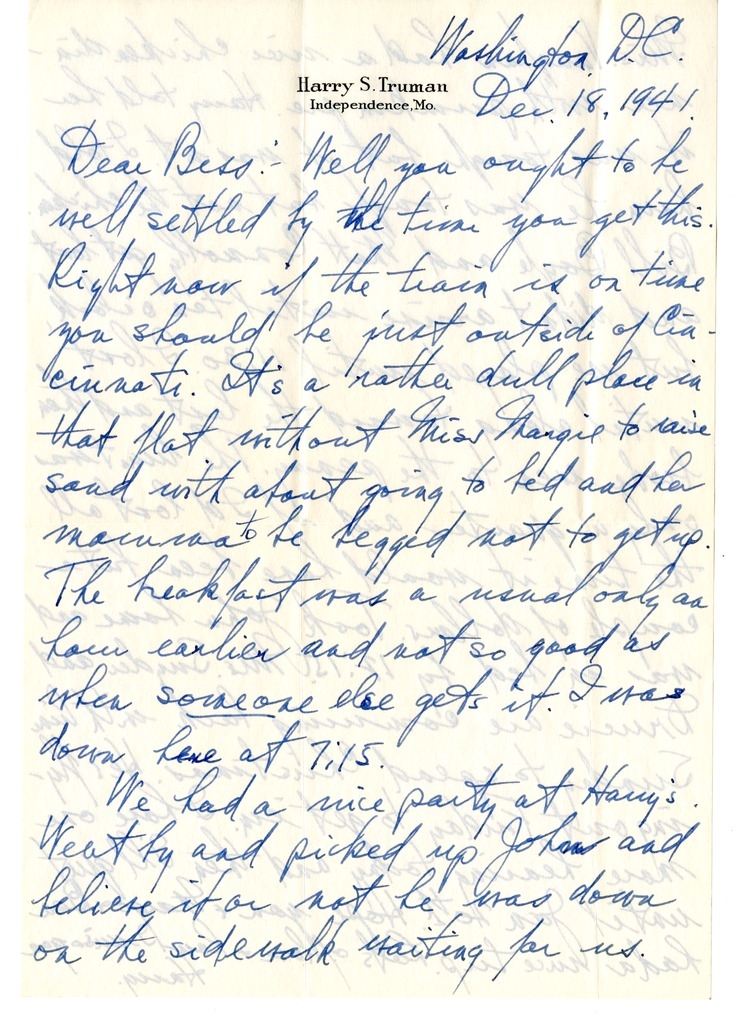 Washington, D.C.
Harry S. Truman
Independence, Mo.
Dec. 18, 1941
Dear Bess:- Well you ought to be
well settled by the time you get this.
Right now if the train is on time
you should be just outside of Cin-
cinnati. It's a rather dull place in
that flat without Miss Margie to raise
sand with about going to bed and her
mamma to be begged not to get up.
The breakfast was a usual only an
hour earlier and not so good as
when someone else gets it. I was
down here at 7:15.
We had a nice party at Harry's.
Went by and picked up John and
believe it or not he was down
on the sidewalk waiting for us.